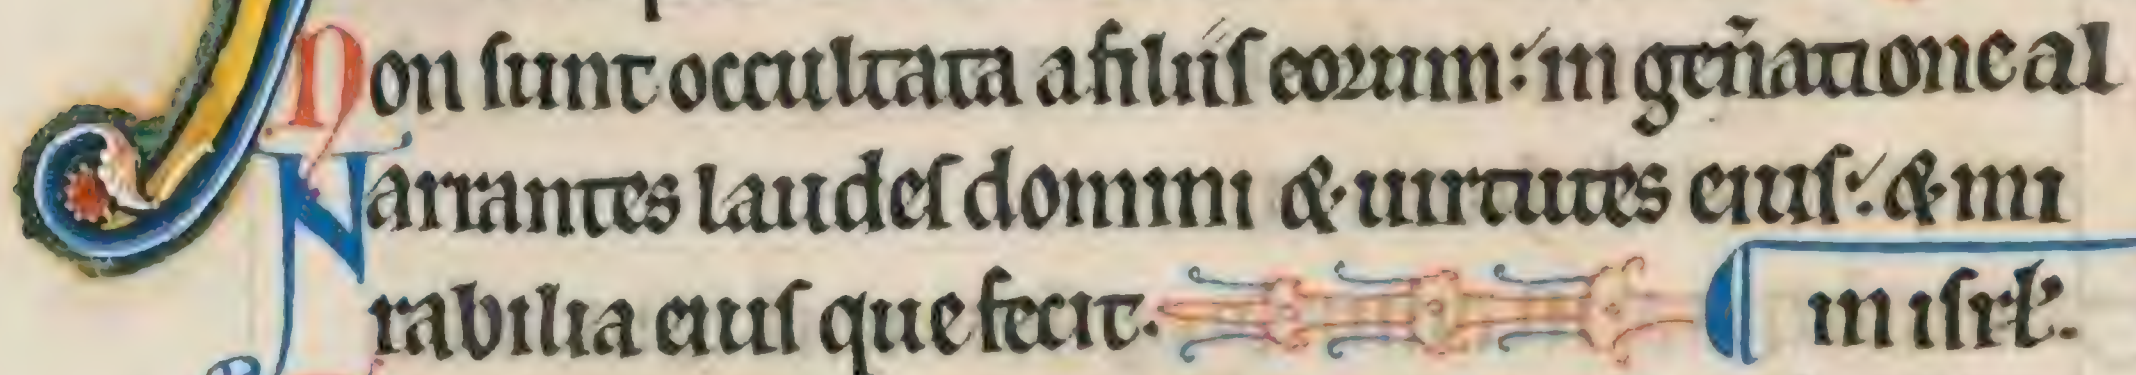 Non sunt occultata a filiis eorum: in gen̄atione al
Narrantes laudes domini & uirtutes eius: & mi
rabilia eius que fecit. in isrł.